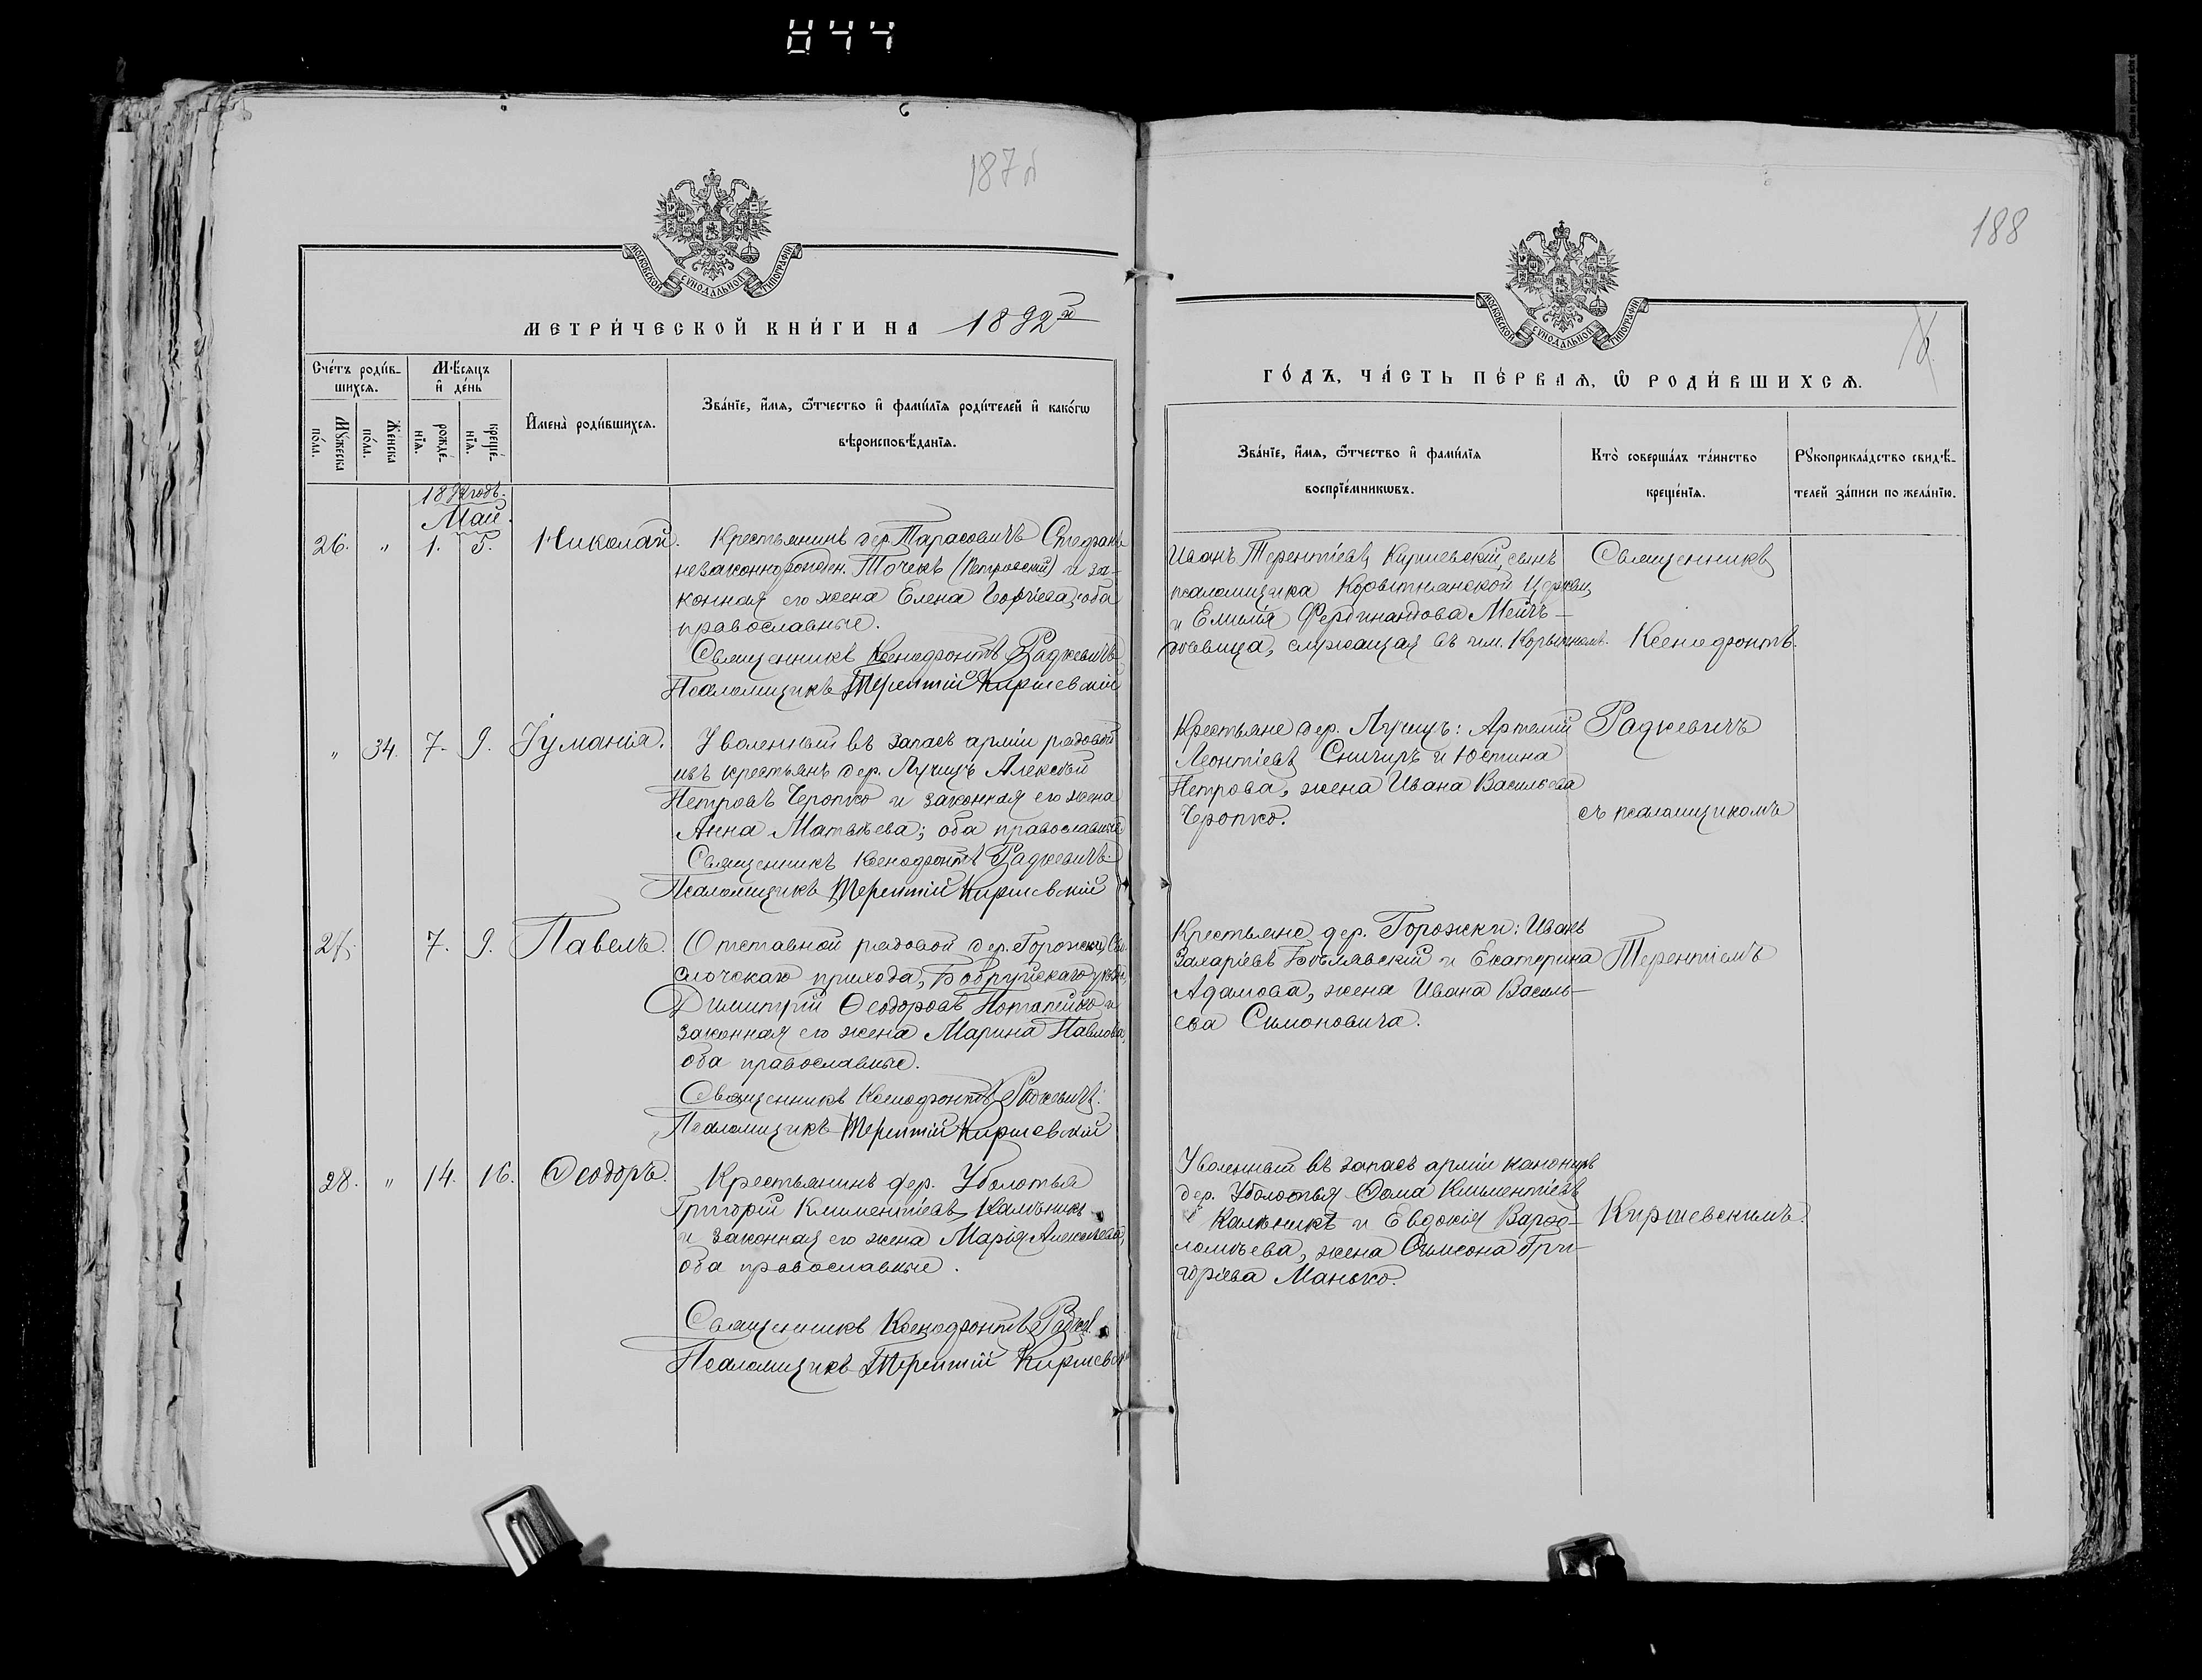 844
187 об
МОСКОВСКОЙ СУНОДАЛЬНОЙ ТИПОГРАФІИ
МЕТРИ́ЧЕСКОЙ КНИ́ГИ НА 1892й
Сче́тъ роди́в-
шихсѧ.
Мꙋ́жеска
по́ла.
Же́нска
по́ла.
Мѣ́сѧцъ
и҆ де́нь
рожде́-
нїѧ.
креще́-
нїѧ.
И҆мена̀ роди́вшихсѧ.
Зва́нїе, и҆́мѧ, ѻ҆́тчество и҆ фами́лїѧ роди́телей и҆ како́гѡ
вѣроисповѣ́данїѧ.
1892 годъ.
Май.
26. " 1. 5. Николай.
Крестьянинъ дер. Тарасовичъ Стефанъ
незаконнорожден. Точекъ (Петровскій) и за-
конная его жена Елена Георгіева, оба
православные.
Священникъ Ксенофонтъ Радкевичъ
Псаломщикъ Терентій Киршевскій
" 34. 7. 9. Іуманія.
Уволенный въ запасъ арміи рядовой
изъ крестьянъ дер. Лучицъ Алексѣй
Петровъ Черопко и законная его жена
Анна Матвѣева; оба православные
Священникъ Ксенофонтъ Радкевичъ
Псаломщикъ Терентій Киршевскій
27. 7. 9. Павелъ.
Отставной рядовой дер. Горожки, Сви-
слочскаго прихода, Бобруйскаго уѣзда,
Димитрій Ѳеодоровъ Потапейко и
законная его жена Марина Павлова,
оба православные.
Священникъ Ксенофонтъ Радкевичъ.
Псаломщикъ Терентій Киршевскій
28. " 14. 16. Ѳеодоръ.
Крестьянинъ дер. Уболотья
Григорій Климентіевъ Кальникъ
и законная его жена Марія Алексѣева,
оба православные.
Священникъ Ксенофонтъ Радкев.
Псаломщикъ Терентій Киршевскій
188
МОСКОВСКОЙ СУНОДАЛЬНОЙ ТИПОГРАФІИ
ГО́ДЪ, ЧА́СТЬ ПЕ́РВАѦ, Ѡ҆ РОДИ́ВШИХСѦ.
Зва́нїе, и҆́мѧ, ѻ҆́тчество и҆ фами́лїѧ
воспрїе́мникѡвъ.
Кто̀ соверша́лъ та́инство
креще́нїѧ.
Рꙋкоприкла́дство свидѣ́-
телей за́писи по жела́нїю.
Иванъ Терентіевъ Киршевскій, сынъ
псаломщика Корытнянской Церкви
и Емилія Фердинандова Мейъ-
ровица, служащая въ им. Корытномъ.
Священникъ
Ксенофонтъ.
Крестьяне дер. Лучицъ: Артемій
Леонтіевъ Снигирь и Юстина
Петрова, жена Ивана Васильева
Черопко.
Радкевичъ
съ псаломщикомъ
Крестьяне дер. Горожки: Иванъ
Захаріевъ Бѣлявскій и Екатерина
Адамова, жена Ивана Василь-
ева Симоновича.
Терентіемъ
Уволенный въ запасъ арміи канониръ
дер. Уболотья Ѳома Климентіевъ
Кальникъ и Евдокія Варѳо-
ломѣева, жена Симеона Гри-
горіева Манько.
Киршевскимъ.